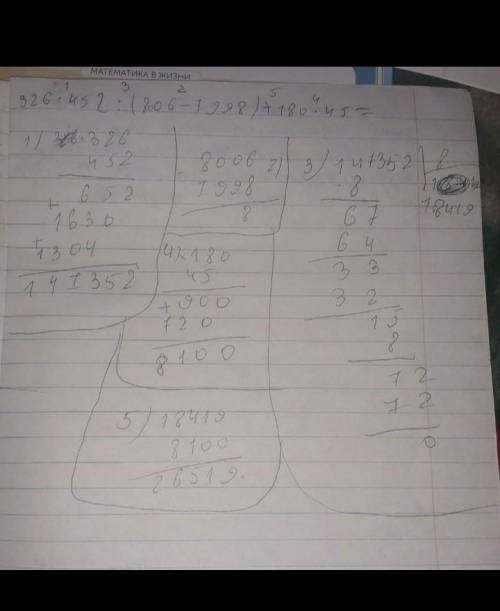 МАТЕМАТИКА В ЖИЗНИ
1 3 2 5 4
326 · 452 : (806 - 1998) + 180 · 45 =
1) 326
452
652
+ 1630
+ 1304
141352
2)
- 8006
1998
8
4) × 180
45
+ 900
720
8100
3) 147352 8
8 18419
67
64
33
32
15
8
72
72
0
5) 18419
8100
26519.